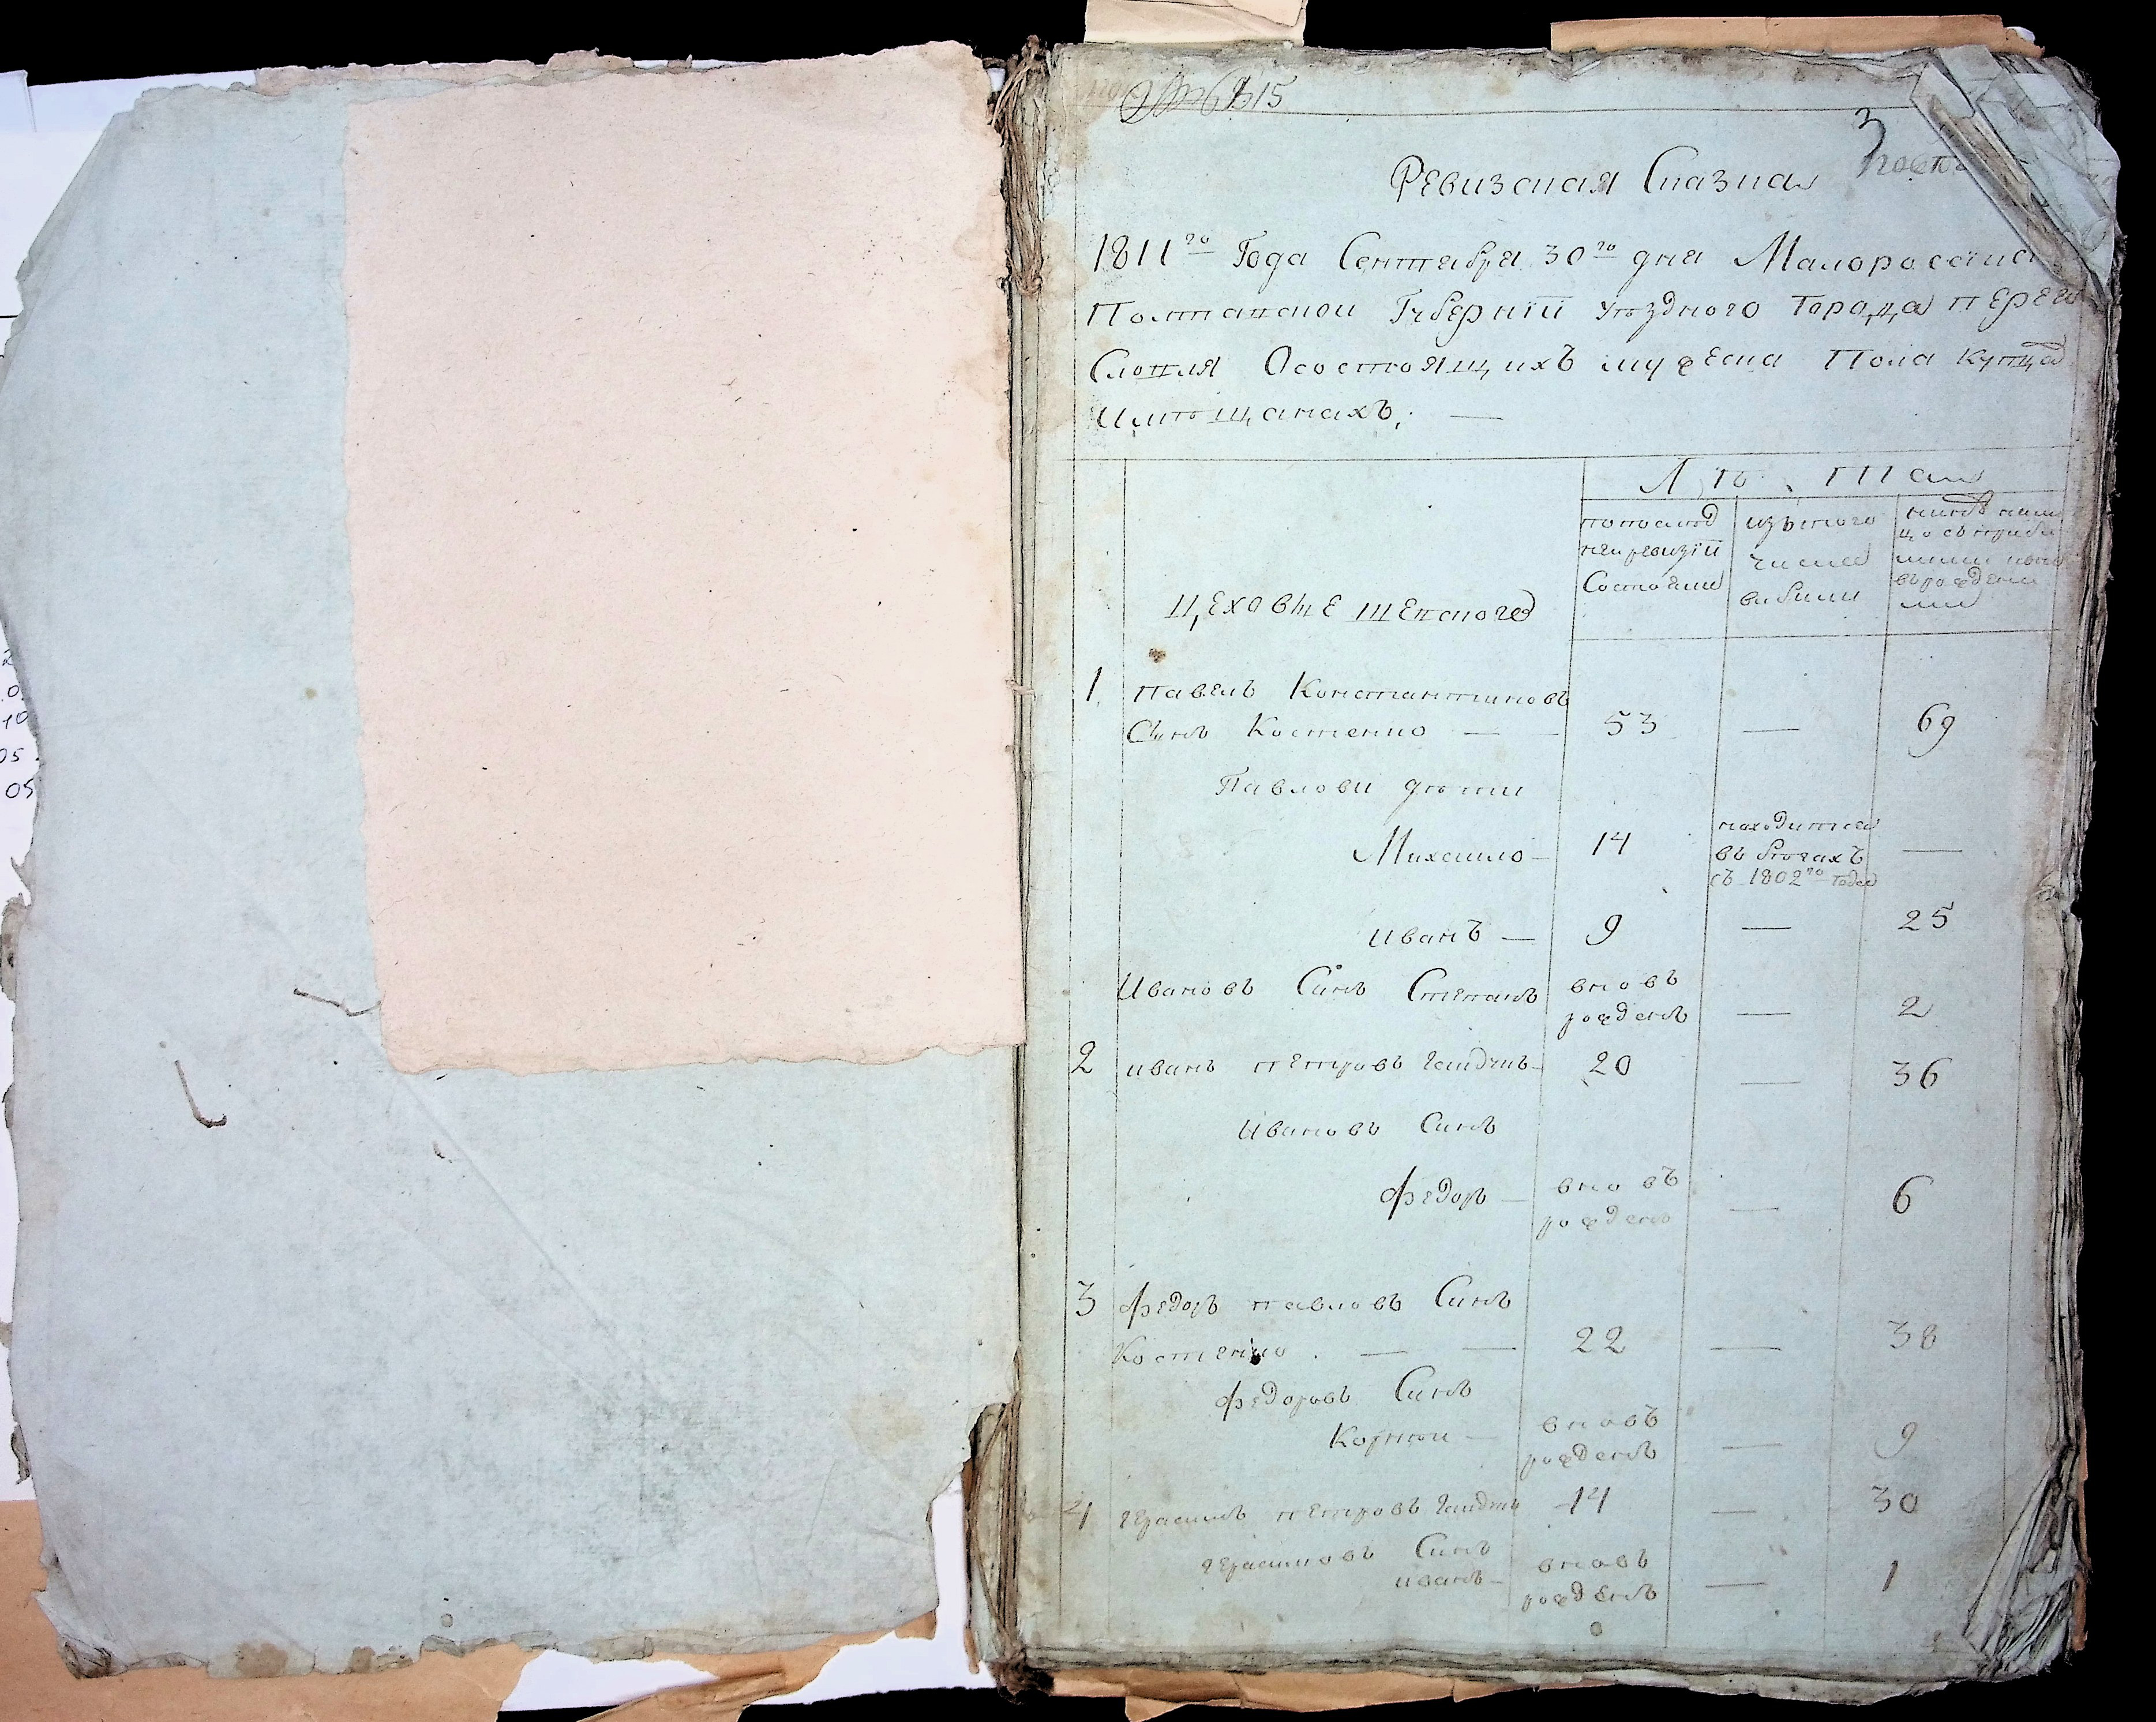 815
3
Ревизская Сказка
1811го Года Сентября 30го дня Малоросийс
Полтавской Губернїи уѣздного Города перея
Славля Осостоящихъ мужеска Пола Купца
Имѣщанахъ;
Лѣта
попослѣд
ней ревизїи
Состояли
изътого
числа
выбыли
Цеховые шевского
1 Павелъ Константиновъ
Синъ Костенко — 53 — 69
Павлови дѣти
Михаило — 14 находится —
въ бѣгахъ
съ 1802го года
Иванъ — 9 — 25
Ивановъ Синъ Степанъ вновь
рожденъ — 2
2 иванъ петровъ — 20 — 36
Ивановъ Синъ
Федоръ — вновъ
рожденъ — 6
3 Федоръ павловъ Синъ
Костенко — 22 — 38
Федоровъ Синъ
Корнѣй — вновъ
рожденъ — 9
4 герасимъ петровъ 14 — 30
герасимовъ Синъ
иванъ — вновъ
рожденъ — 1